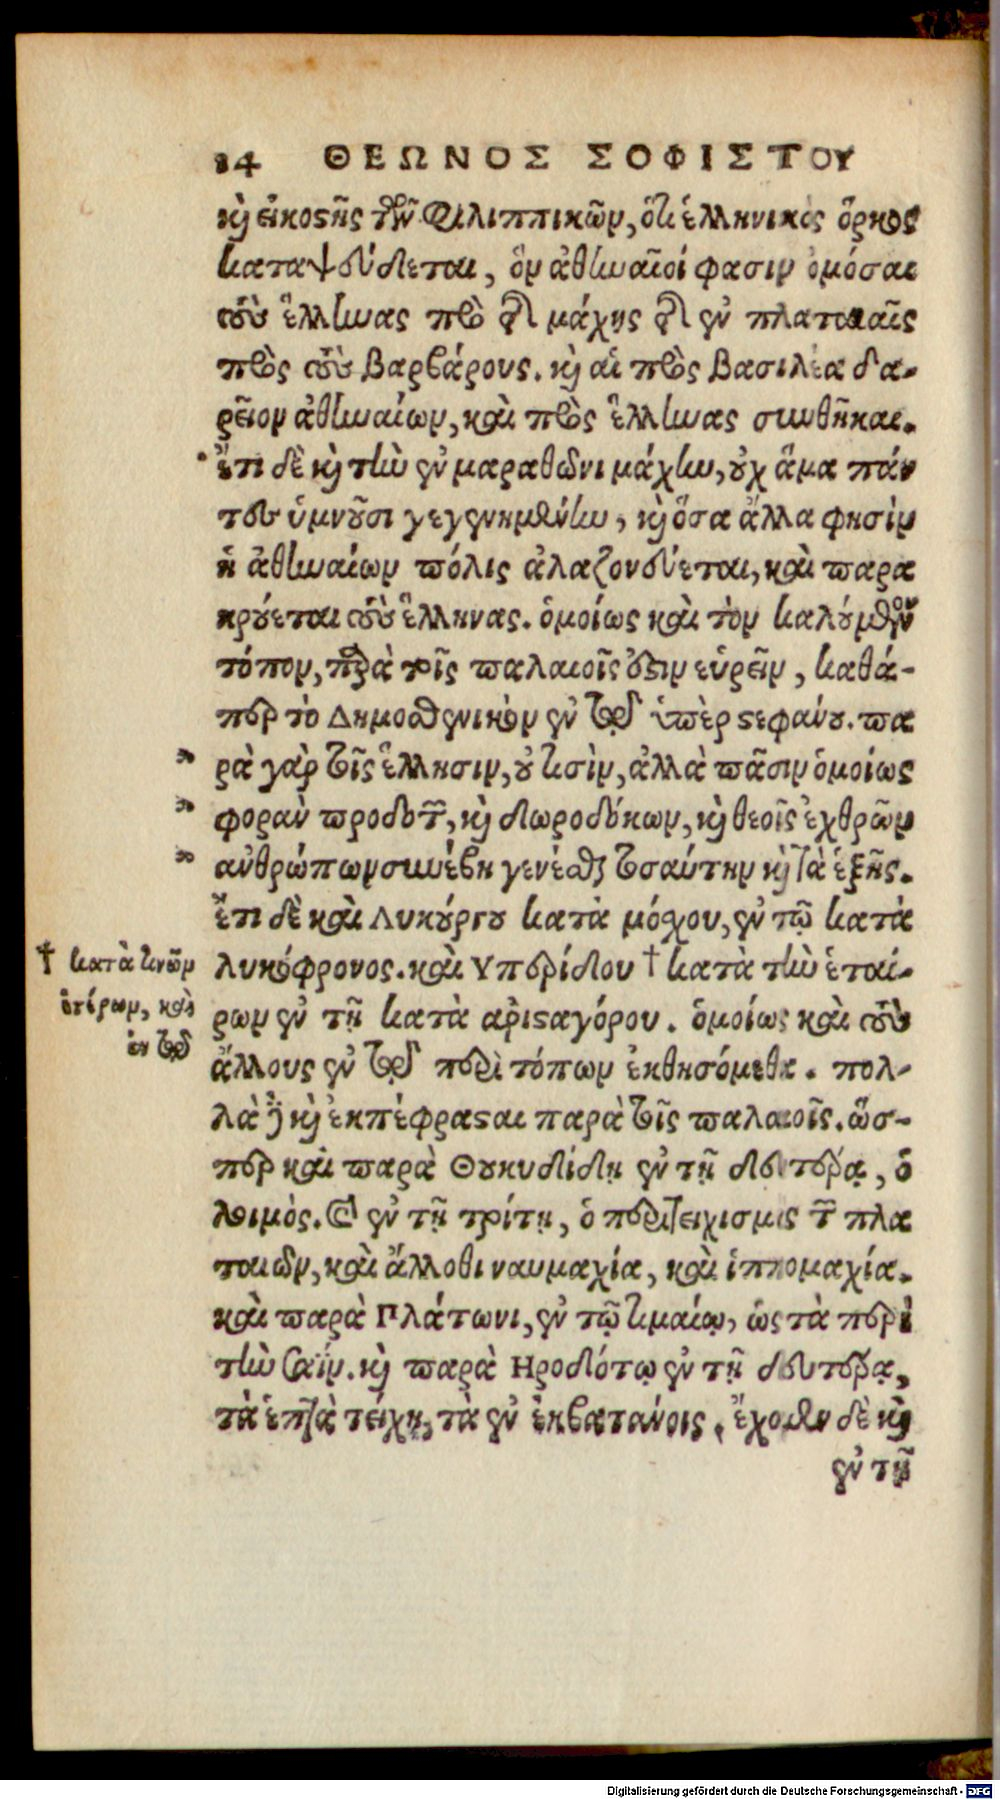 14 ΘΕΩΝΟΣ ΣΟΦΙΣΤΟΥ
καὶ εἰκοστῆς τῶν Φιλιππικῶν, ὅτι ἑλληνικὸς ὅρκος
καταψεύδεται, ὃν ἀθηναῖοί φασιν ὀμόσαι
τοὺς ἕλληνας πρὸ τῆς μάχης τῆς ἐν πλαταιαῖς
πρὸς τοὺς βαρβάρους. καὶ αἱ πρὸς βασιλέα δα-
ρεῖον ἀθηναίων, καὶ πρὸς ἕλληνας συνθῆκαι.
ἔτι δὲ καὶ τὴν ἐν μαραθῶνι μάχην, οὐχ ἅμα πάν
τες ὑμνοῦσι γεγενημένην, καὶ ὅσα ἄλλα φησὶν
ἡ ἀθηναίων πόλις ἀλαζονεύεται, καὶ παρα
κρούεται τοὺς ἕλληνας. ὁμοίως καὶ τὸν καλούμενον
τόπον, παρὰ τοῖς παλαιοῖς ἔστιν εὑρεῖν, καθά-
περ τὸ Δημοσθενικὸν ἐν τῷ ὑπὲρ στεφάνου. πα
ρὰ γὰρ τοῖς ἕλλησιν, οὐ τισὶν, ἀλλὰ πᾶσιν ὁμοίως
φορὰν προδοτῶν, καὶ δωροδόκων, καὶ θεοῖς ἐχθρῶν
ἀνθρώπων συνέβη γενέσθαι τοσαύτην καὶ τὰ ἑξῆς.
ἔτι δὲ καὶ Λυκούργου κατὰ μόχου, ἐν τῷ κατὰ
λυκόφρονος. καὶ Υπερίδου † κατὰ τὴν ἑταί-
ρων ἐν τῇ κατὰ αριςαγόρου. ὁμοίως καὶ τοὺς
ἄλλους ἐν τῷ περὶ τόπων ἐκθησόμεθα. πολ-
λὰ δὲ καὶ ἐκπέφρασται παρὰ τοῖς παλαιοῖς. ὥσ-
περ καὶ παρὰ Θουκυδίδῃ ἐν τῇ δευτέρᾳ, ὁ
λοιμὸς. καὶ ἐν τῇ τρίτῃ, ὁ περιτειχισμὸς τῶν πλα
ταιῶν, καὶ ἄλλοθι ναυμαχία, καὶ ἱππομαχία.
καὶ παρὰ Πλάτωνι, ἐν τῷ τιμαίῳ, ὡς τὰ περὶ
τὴν Σαΐν. καὶ παρὰ Ηροδότῳ ἐν τῇ δευτέρᾳ,
τὰ ἑπτὰ τείχη, τὰ ἐν ἐκβατάνοις. ἔχομεν δὲ καὶ
ἐν τῇ
† κατὰ τινῶν
ἑτέρων, καὶ
ἐν τῷ
Digitalisierung gefördert durch die Deutsche Forschungsgemeinschaft - DFG